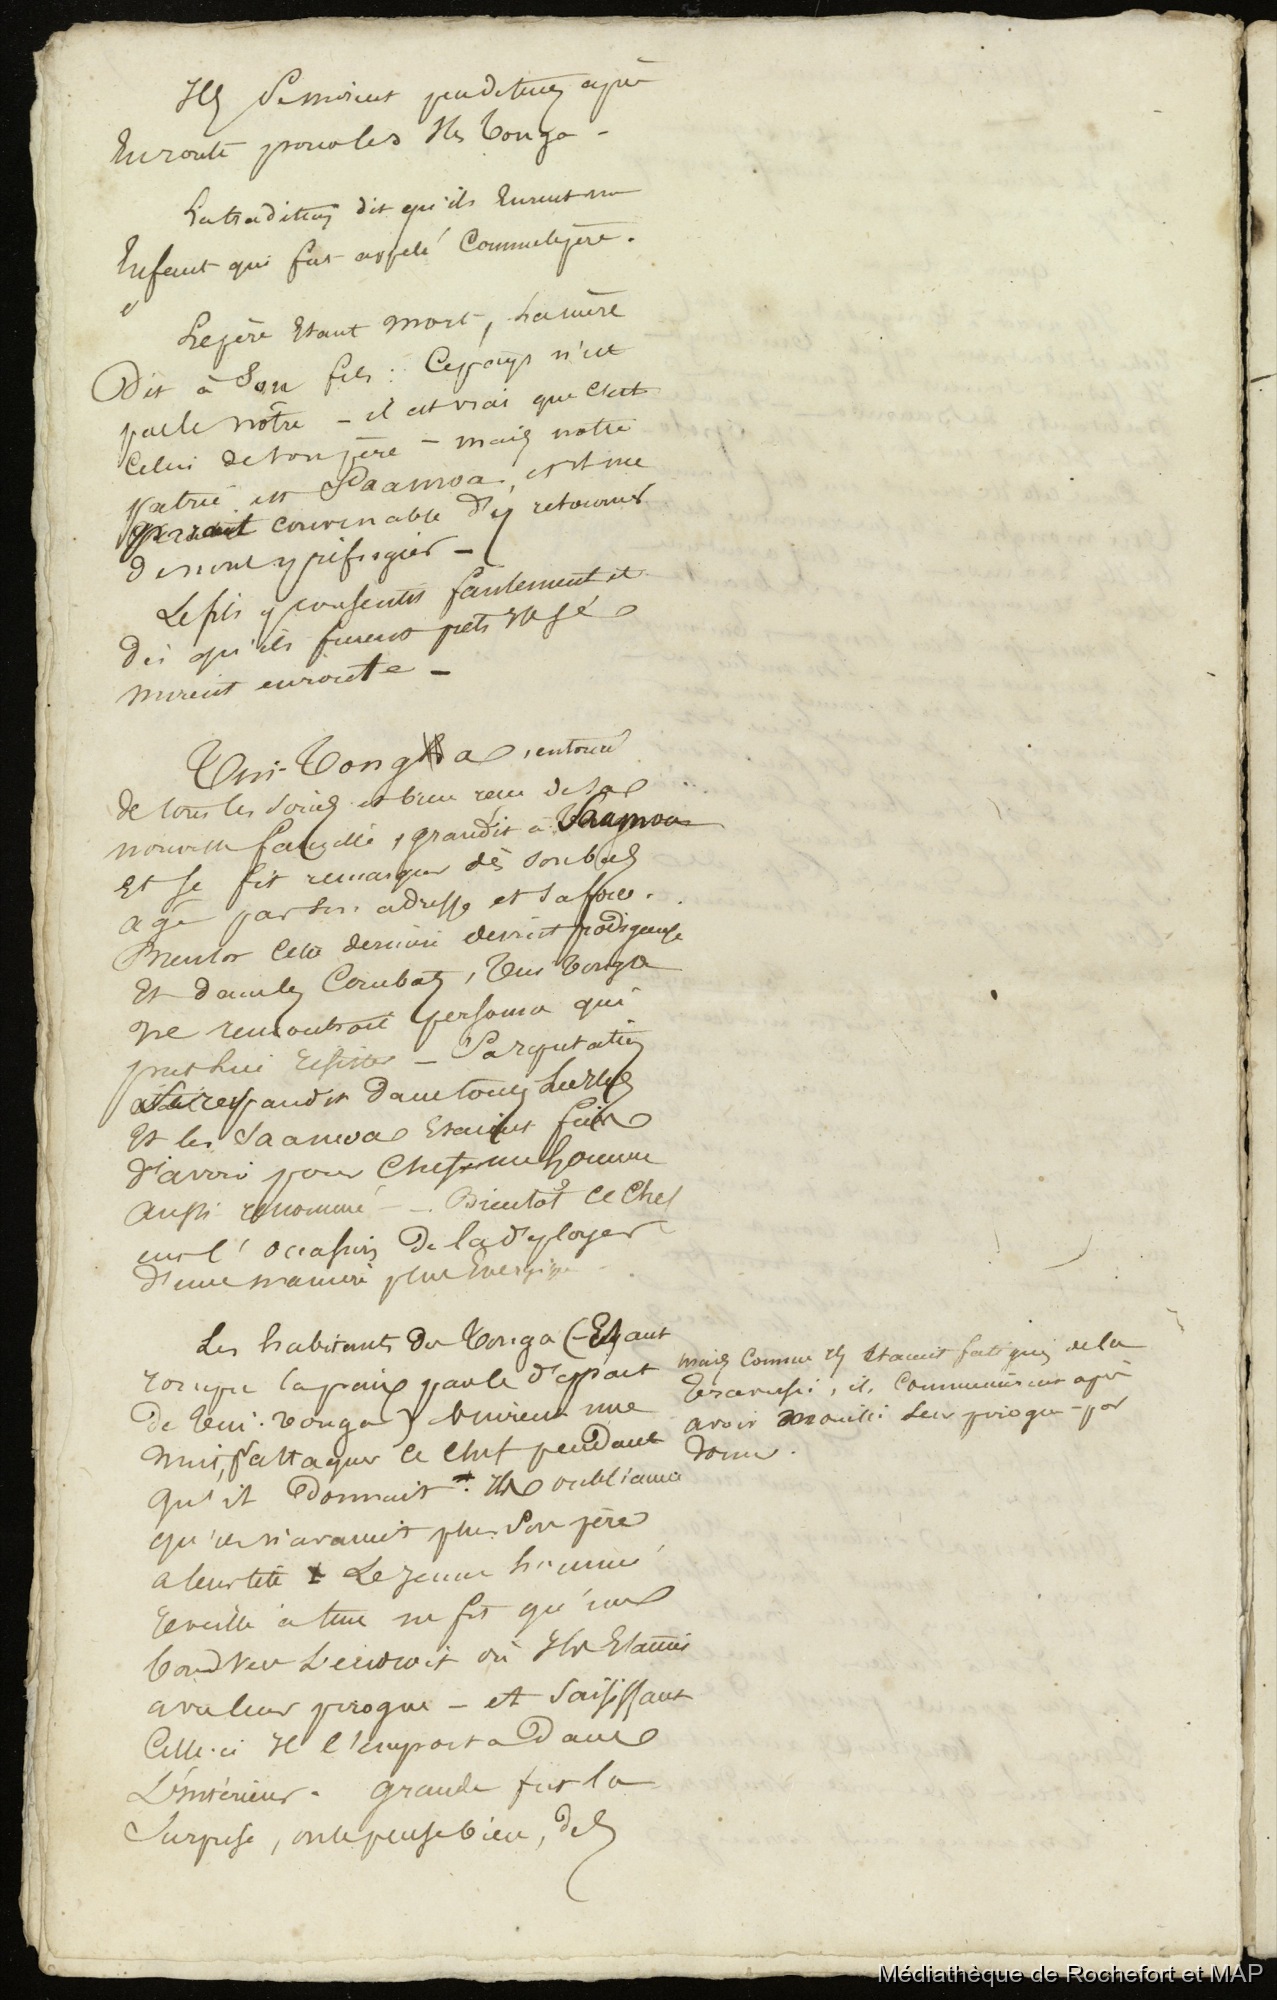 Ils se mirent peu de temps après
En route pour les Iles Tonga -
La tradition dit qu'ils Eurent un
Enfant qui fut appelé Comme le père.
Le père Etant mort, La mère
Dit à Son fils : Ce pays n'est
pas le nôtre - il est vrai que C'est
Celui de ton père - mais notre
patrie est Saamoa, et il me
parait convenable d'y retourner
de nous y réfugier -
Le fils y consentit
Dès qu'ils furent prêts Ils Se
mirent en route -
Tui-Tonga, entouré
de tous les soins et bien reçu de Sa
nouvelle famille, grandit à Saamoa
Et Se fit remarquer dès Son bas
age par Son adresse et Sa force.
Bientot Cette dernière devint prodigieuse
Et dans les Combats, Tui Tonga
ne rencontrait personne qui
put lui résister - Sa réputation
Se repandit dans toutes Les Iles
Et les Saamoa Etaient fiers
D'avoir pour Chef un homme
aussi renommé - Bientôt Ce Chef
eut l'occasion De la déployer
d'une manière plus Energique
Les habitants de Tonga (Ayant
rompu la paix par le départ
de Tui-Tonga) Vinrent une
nuit, attaquer Ce Chef pendant
qu'il Dormait. Ils oubliaient
qu'ils n'avaient plus Son père
a leur tête Le jeune homme
reveillé à tems ne fit qu'un
bond Vers L'endroit où Ils Etaient
avec leur pirogue - et Saisissant
Celle-ci Il l'emporta Dans
L'intérieur. Grande fut la
Surprise, on le pense bien, des
mais Comme ils Etaient fatigués de la
traversée, ils Commencèrent après
avoir mouillé Leur pirogue - par
Dormir.
Médiathèque de Rochefort et MAP